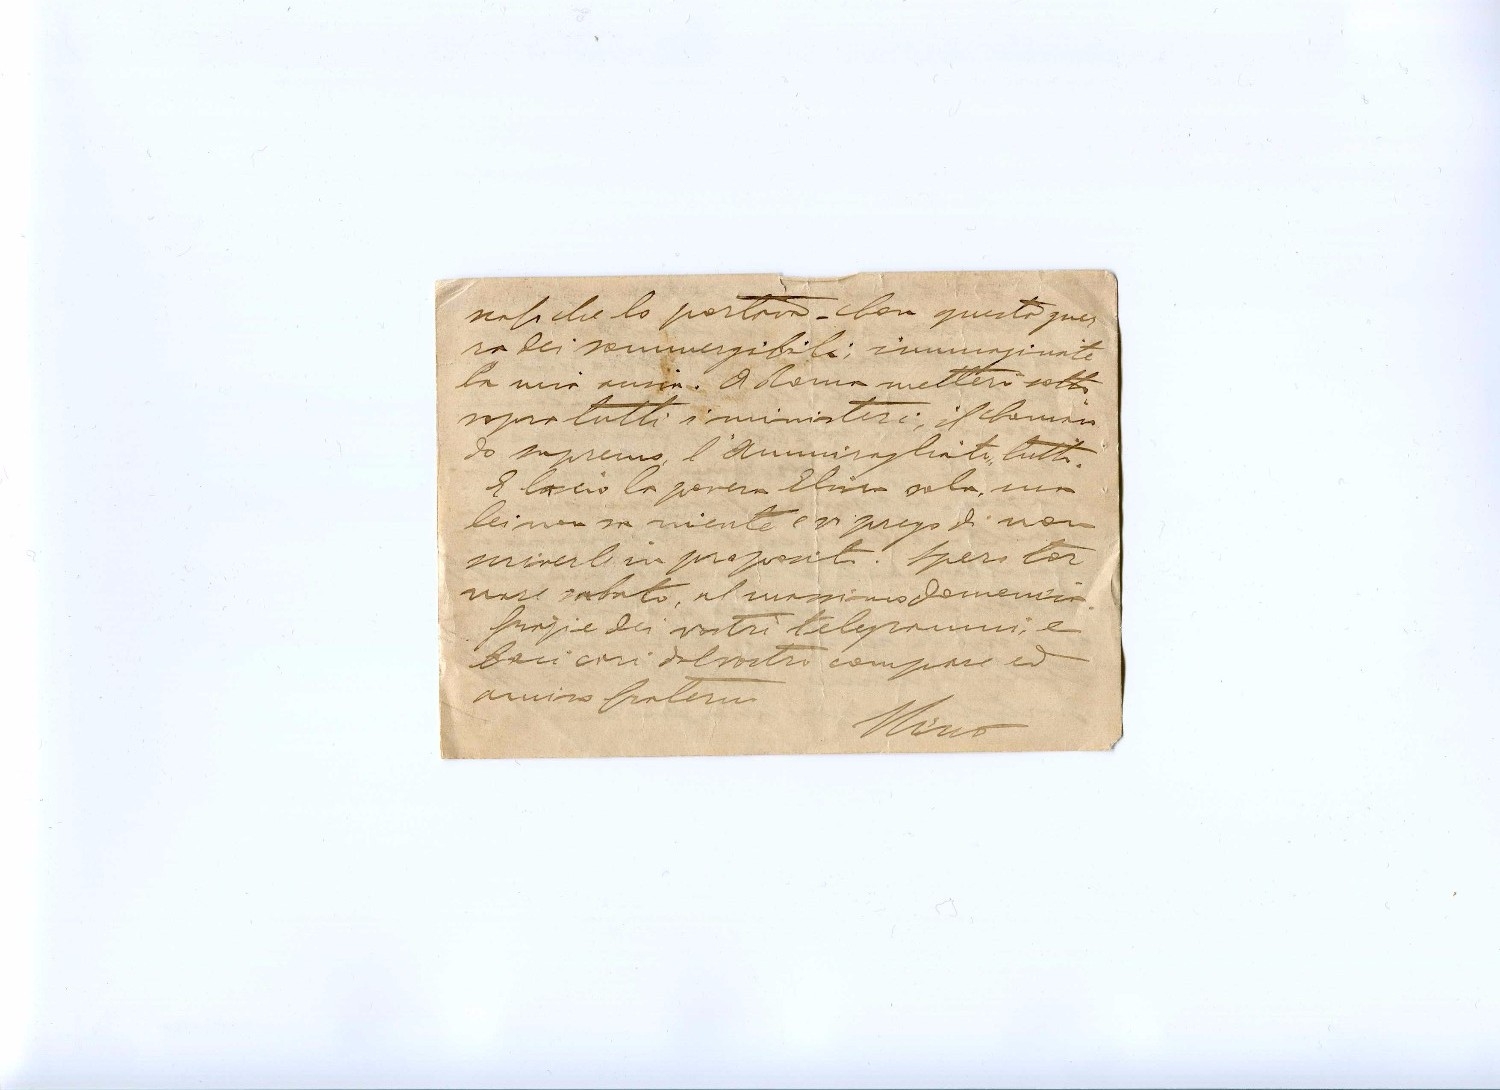 che lo portava. Con questa guer
ra dei sommergibili; immaginate
la mia ansia. A Roma metterò sotto
sopra tutti i ministeri, il Coman
do supremo, l'Ammiragliato, tutti.
E lascio la povera Elvira sola, ma
lei non sa niente e vi prego di non
scriverle in proposito. Spero tor
nare sabato, al massimo domenica.
Grazie dei vostri telegrammi, e
baci cari dal vostro compare ed
amico fraterno
Nino